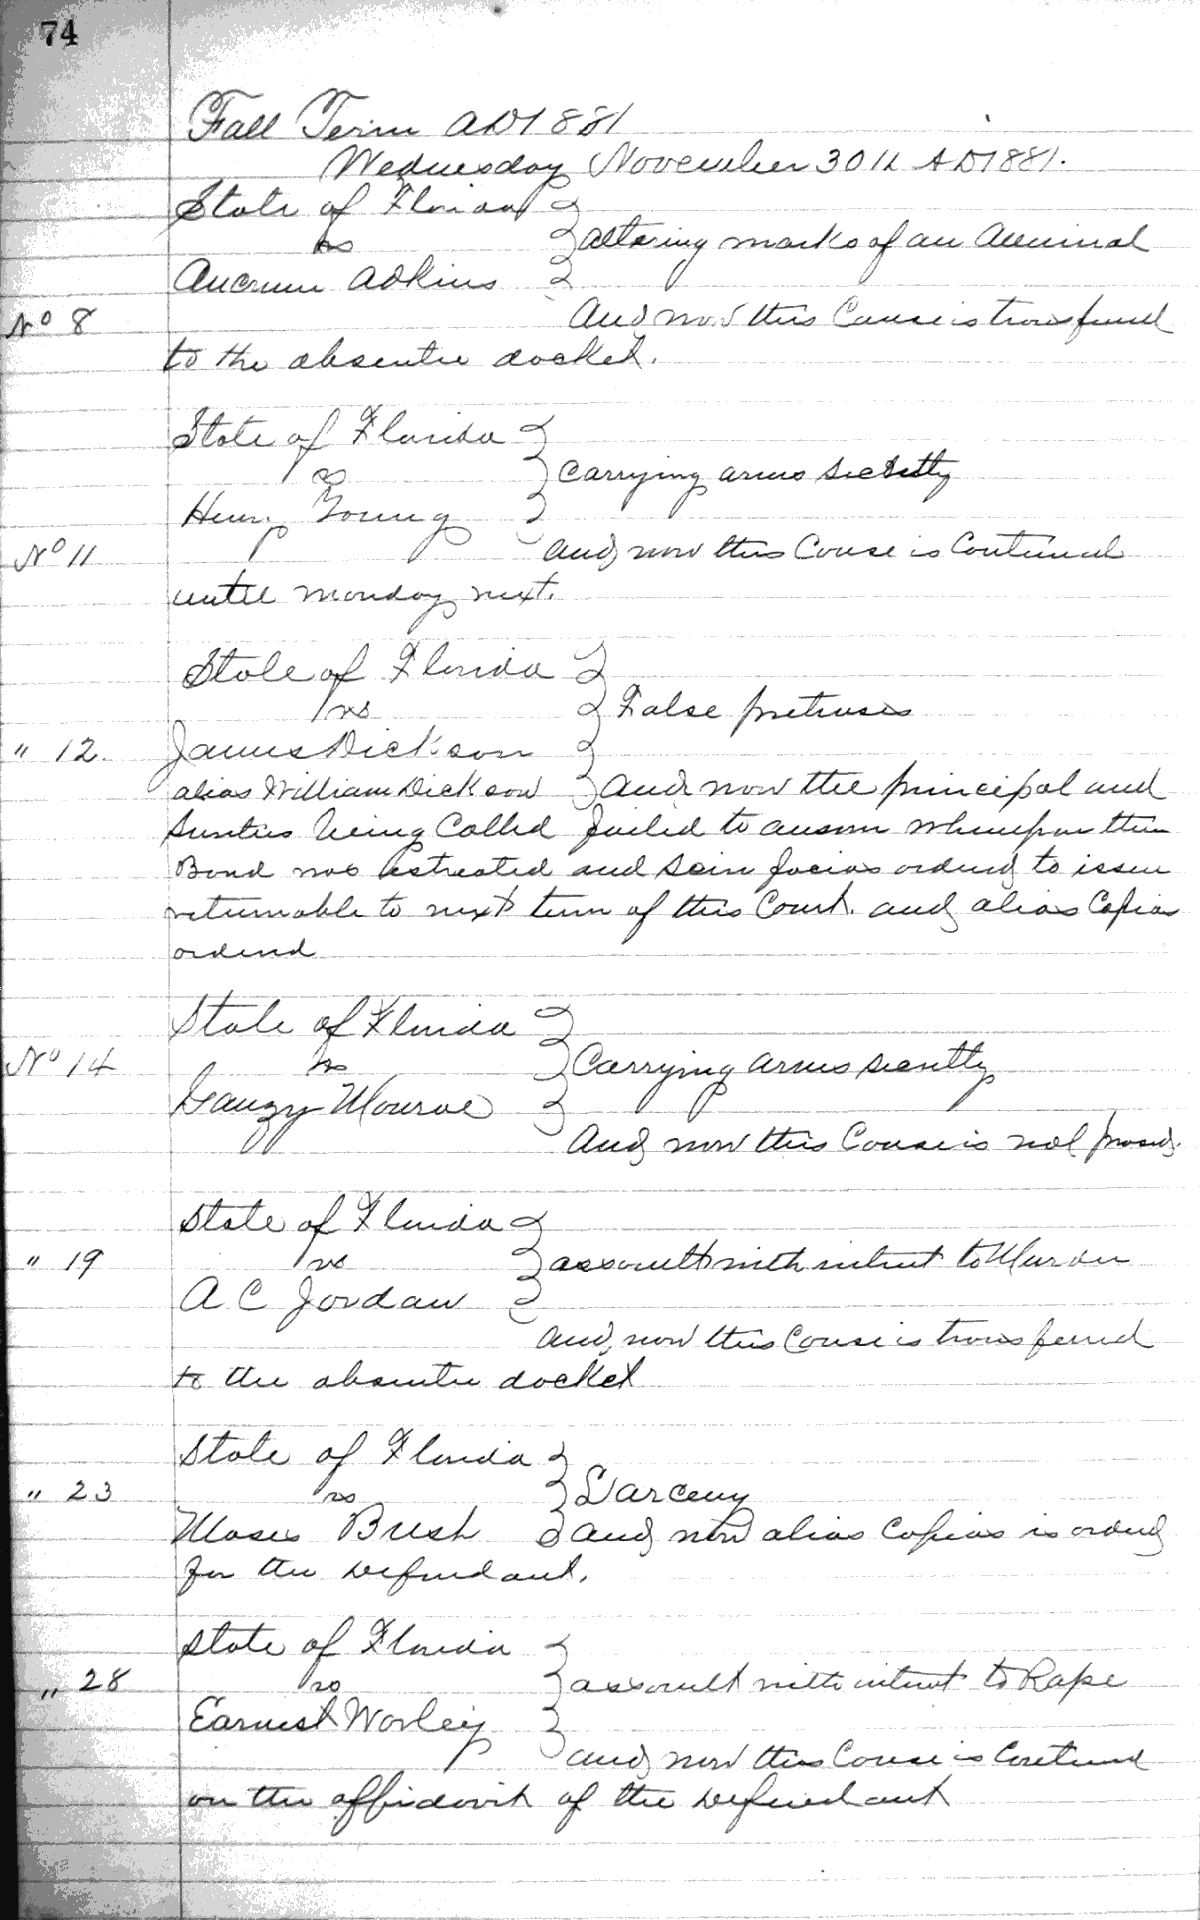 74
Fall Term AD1881
Wednesday November 30th AD1881.
State of Florida
vs
altering marks of an Animal
Adkins
And now this Cause is transferred
No 8
to the absentee docket.
State of Florida
vs
Carrying arms secretly
Henry Young
No 11
and now this Cause is Continued
until monday next.
State of Florida
vs
False pretenses
" 12.
James Dickson
alias William Dickson
and now the principal and
Sureties being Called failed to answer whereupon their
Bond was Estreated and Scire facias ordered to issue
returnable to next term of this Court. and alias Capias
ordered
State of Florida
No 14
vs
Carrying arms secretly
Monroe
And now this Cause is nol prosed.
State of Florida
" 19
vs
assault with intent to Murder
A C Jordan
And now this Cause is transferred
to the absentee docket
State of Florida
" 23
vs
Larceny
Moses Bush
and now alias Capias is ordered
for the Defendant.
State of Florida
" 28
vs
assault with intent to Rape
Earnest Worley
and now this Cause is Continued
on the affidavit of the Defendant